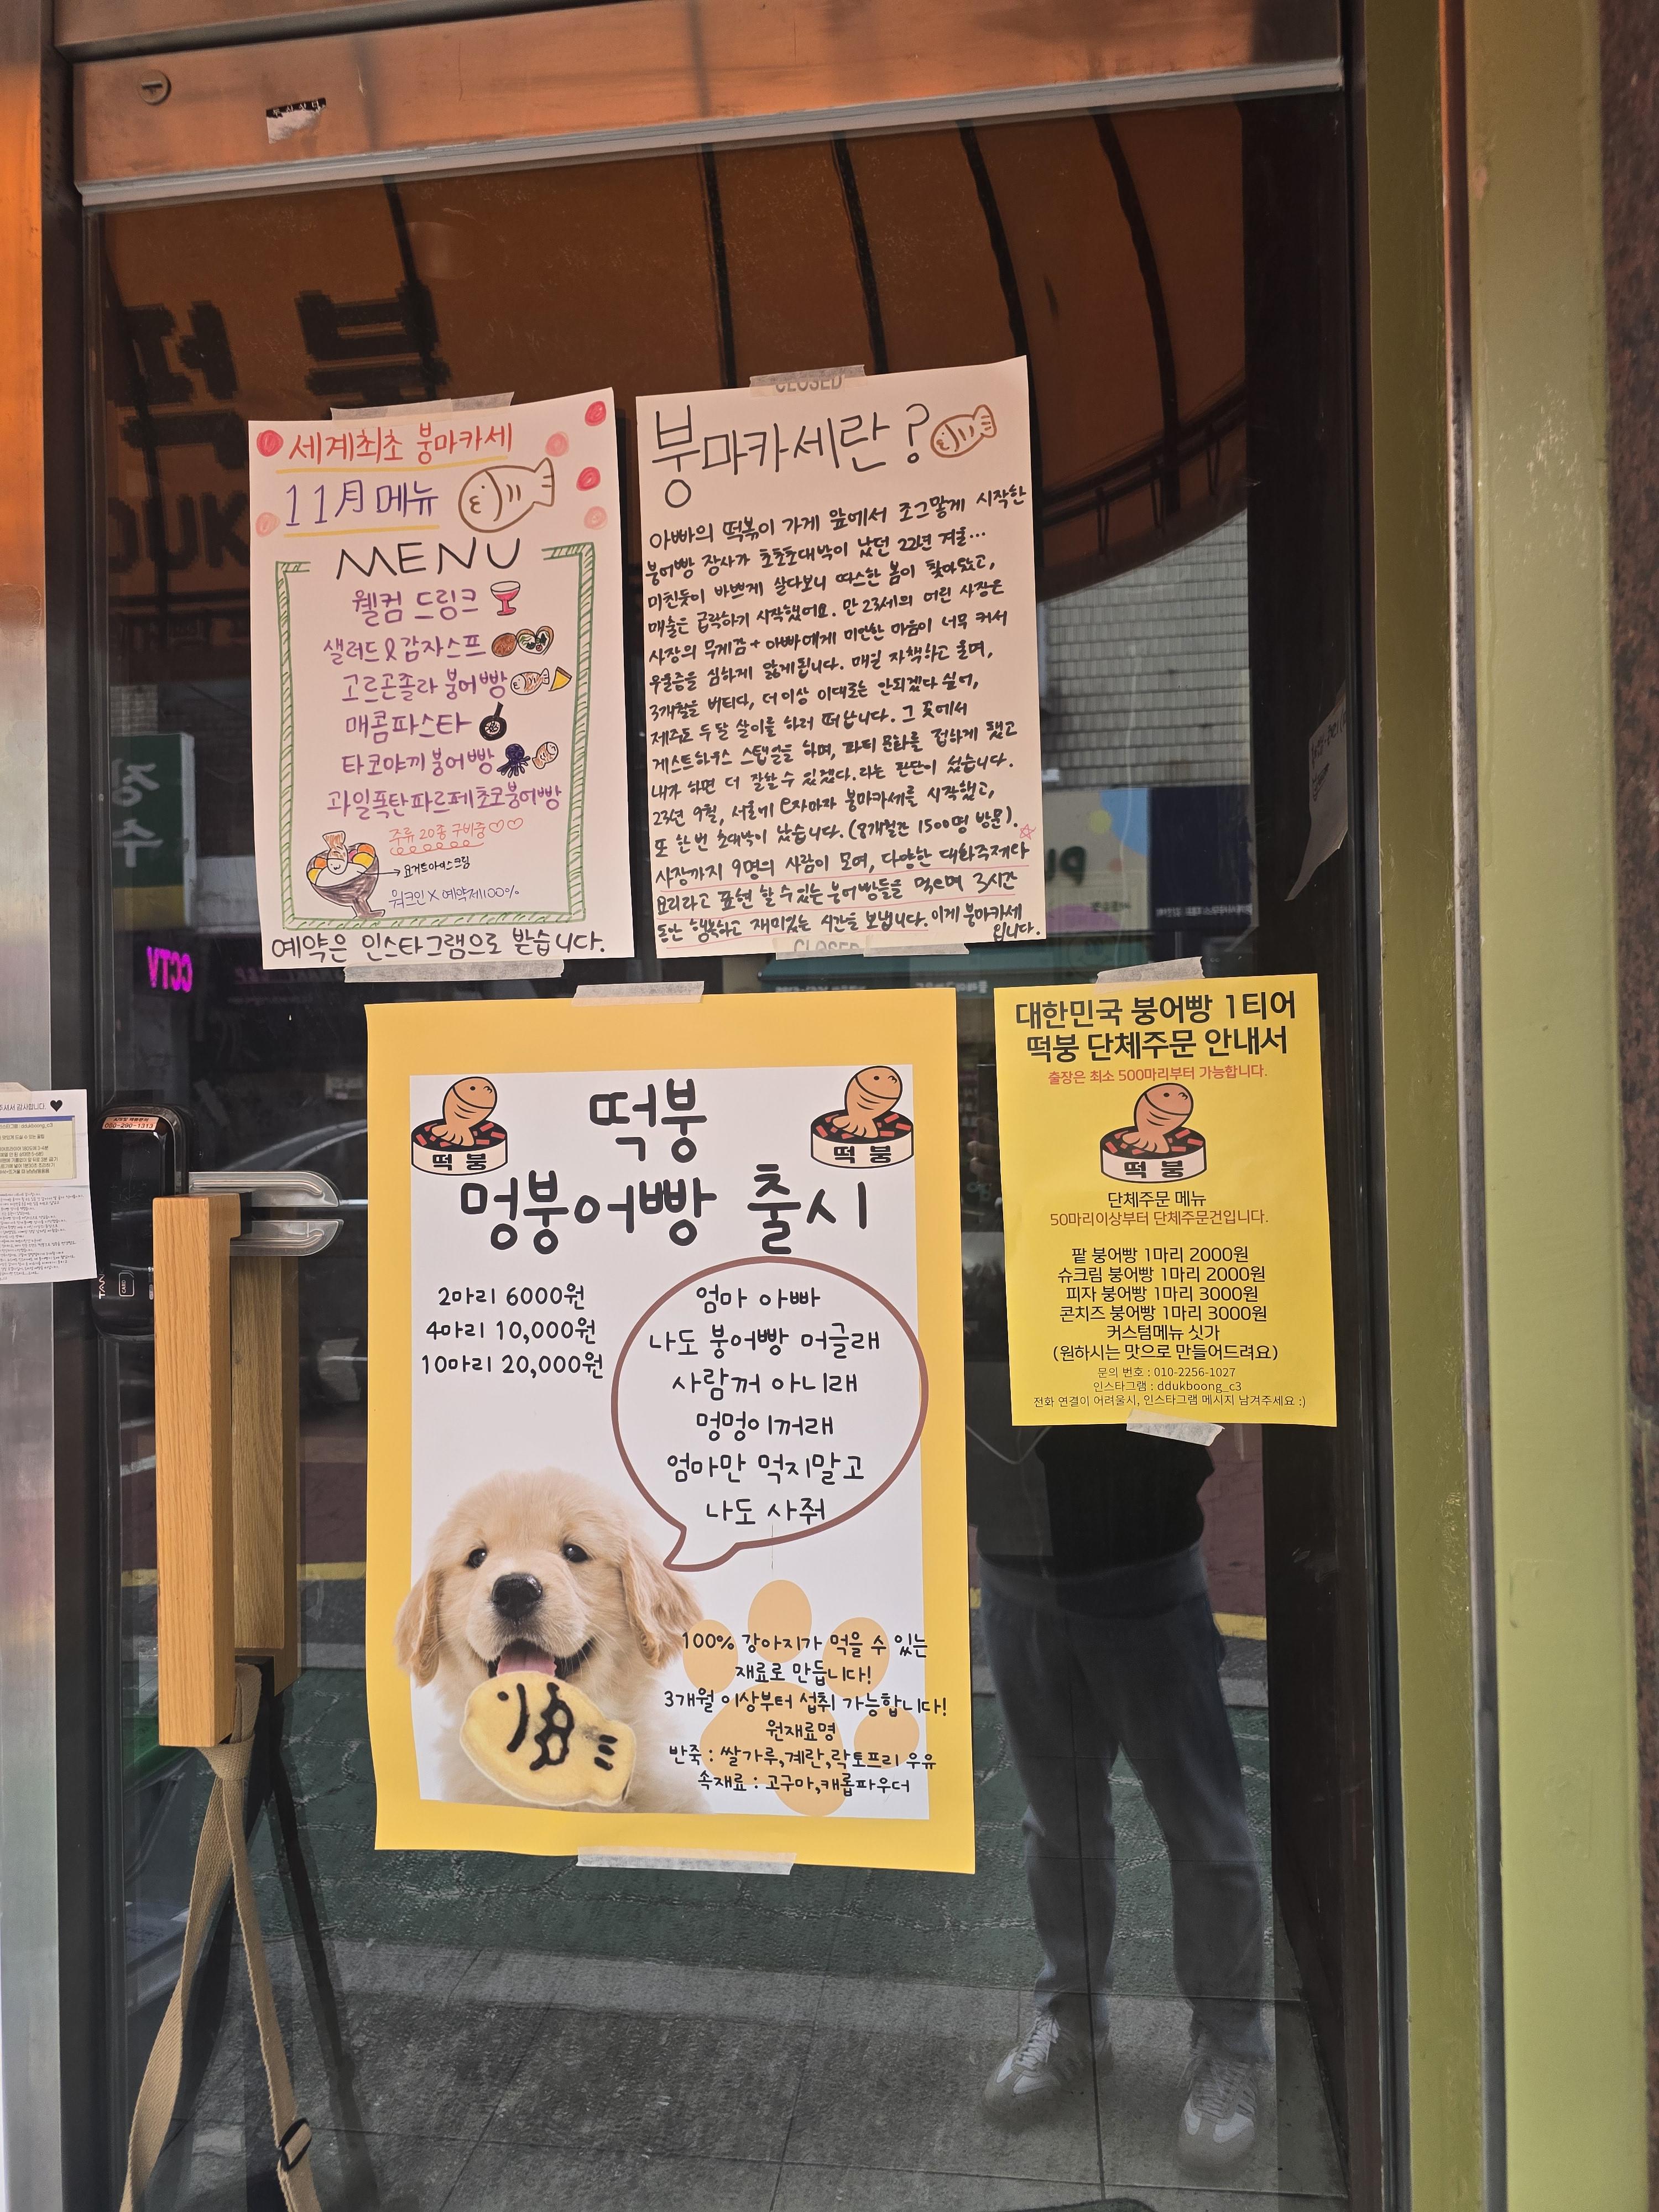 세계최초 붕마카세
11月 메뉴
MENU
웰컴 드링크
샐러드&감자스프
고르곤졸라 붕어빵
매콤파스타
타코야끼 붕어빵
과일폭탄파르페초코붕어빵
주류 20종 구비중♡♡
요거트아이스크림
워크인 X 예약제100%
예약은 인스타그램으로 받습니다.
CLOSED
붕마카세란?
아빠의 떡볶이 가게 앞에서 조그맣게 시작한
붕어빵 장사가 초초초대박이 났던 22년 겨울...
미친듯이 바쁘게 살다보니 따스한 봄이 찾아왔고,
매출은 급락하기 시작했어요. 만 23세의 어린 사장은
사장의 무게감 + 아빠에게 미안한 마음이 너무 커서
우울증을 심하게 앓게됩니다. 매일 자책하고 울며,
3개월을 버티다, 더이상 이대로는 안되겠다 싶어,
제주도 두달 살이를 하러 떠납니다. 그 곳에서
게스트하우스 스탭일을 하며, 파티 문화를 접하게 됐고
내가 하면 더 잘할 수 있겠다. 라는 판단이 섰습니다.
23년 9월, 서울에 붕마카세를 시작했고,
또 한번 초대박이 났습니다. (8개월간 1500명 방문).
사장까지 9명의 사람이 모여, 다양한 대화주제와
요리라고 표현 할 수 있는 붕어빵들을 먹으며 3시간
동안 행복하고 재미있는 시간을 보냅니다. 이게 붕마카세
입니다.
CLOSED
CCTV
떡붕
떡붕
떡붕
멍붕어빵 출시
2마리 6000원
4마리 10,000원
10마리 20,000원
엄마 아빠
나도 붕어빵 머글래
사람꺼 아니래
멍멍이꺼래
엄마만 먹지말고
나도 사줘
100% 강아지가 먹을 수 있는
재료로 만듭니다!
3개월 이상부터 섭취 가능합니다!
원재료명
반죽 : 쌀가루,계란,락토프리 우유
속재료 : 고구마,캐롭파우더
대한민국 붕어빵 1티어
떡붕 단체주문 안내서
출장은 최소 500마리부터 가능합니다.
떡붕
단체주문 메뉴
50마리이상부터 단체주문건입니다.
팥 붕어빵 1마리 2000원
슈크림 붕어빵 1마리 2000원
피자 붕어빵 1마리 3000원
콘치즈 붕어빵 1마리 3000원
커스텀메뉴 싯가
(원하시는 맛으로 만들어드려요)
문의 번호 : 010-2256-1027
인스타그램 : ddukboong_c3
전화 연결이 어려울시, 인스타그램 메시지 남겨주세요 :)